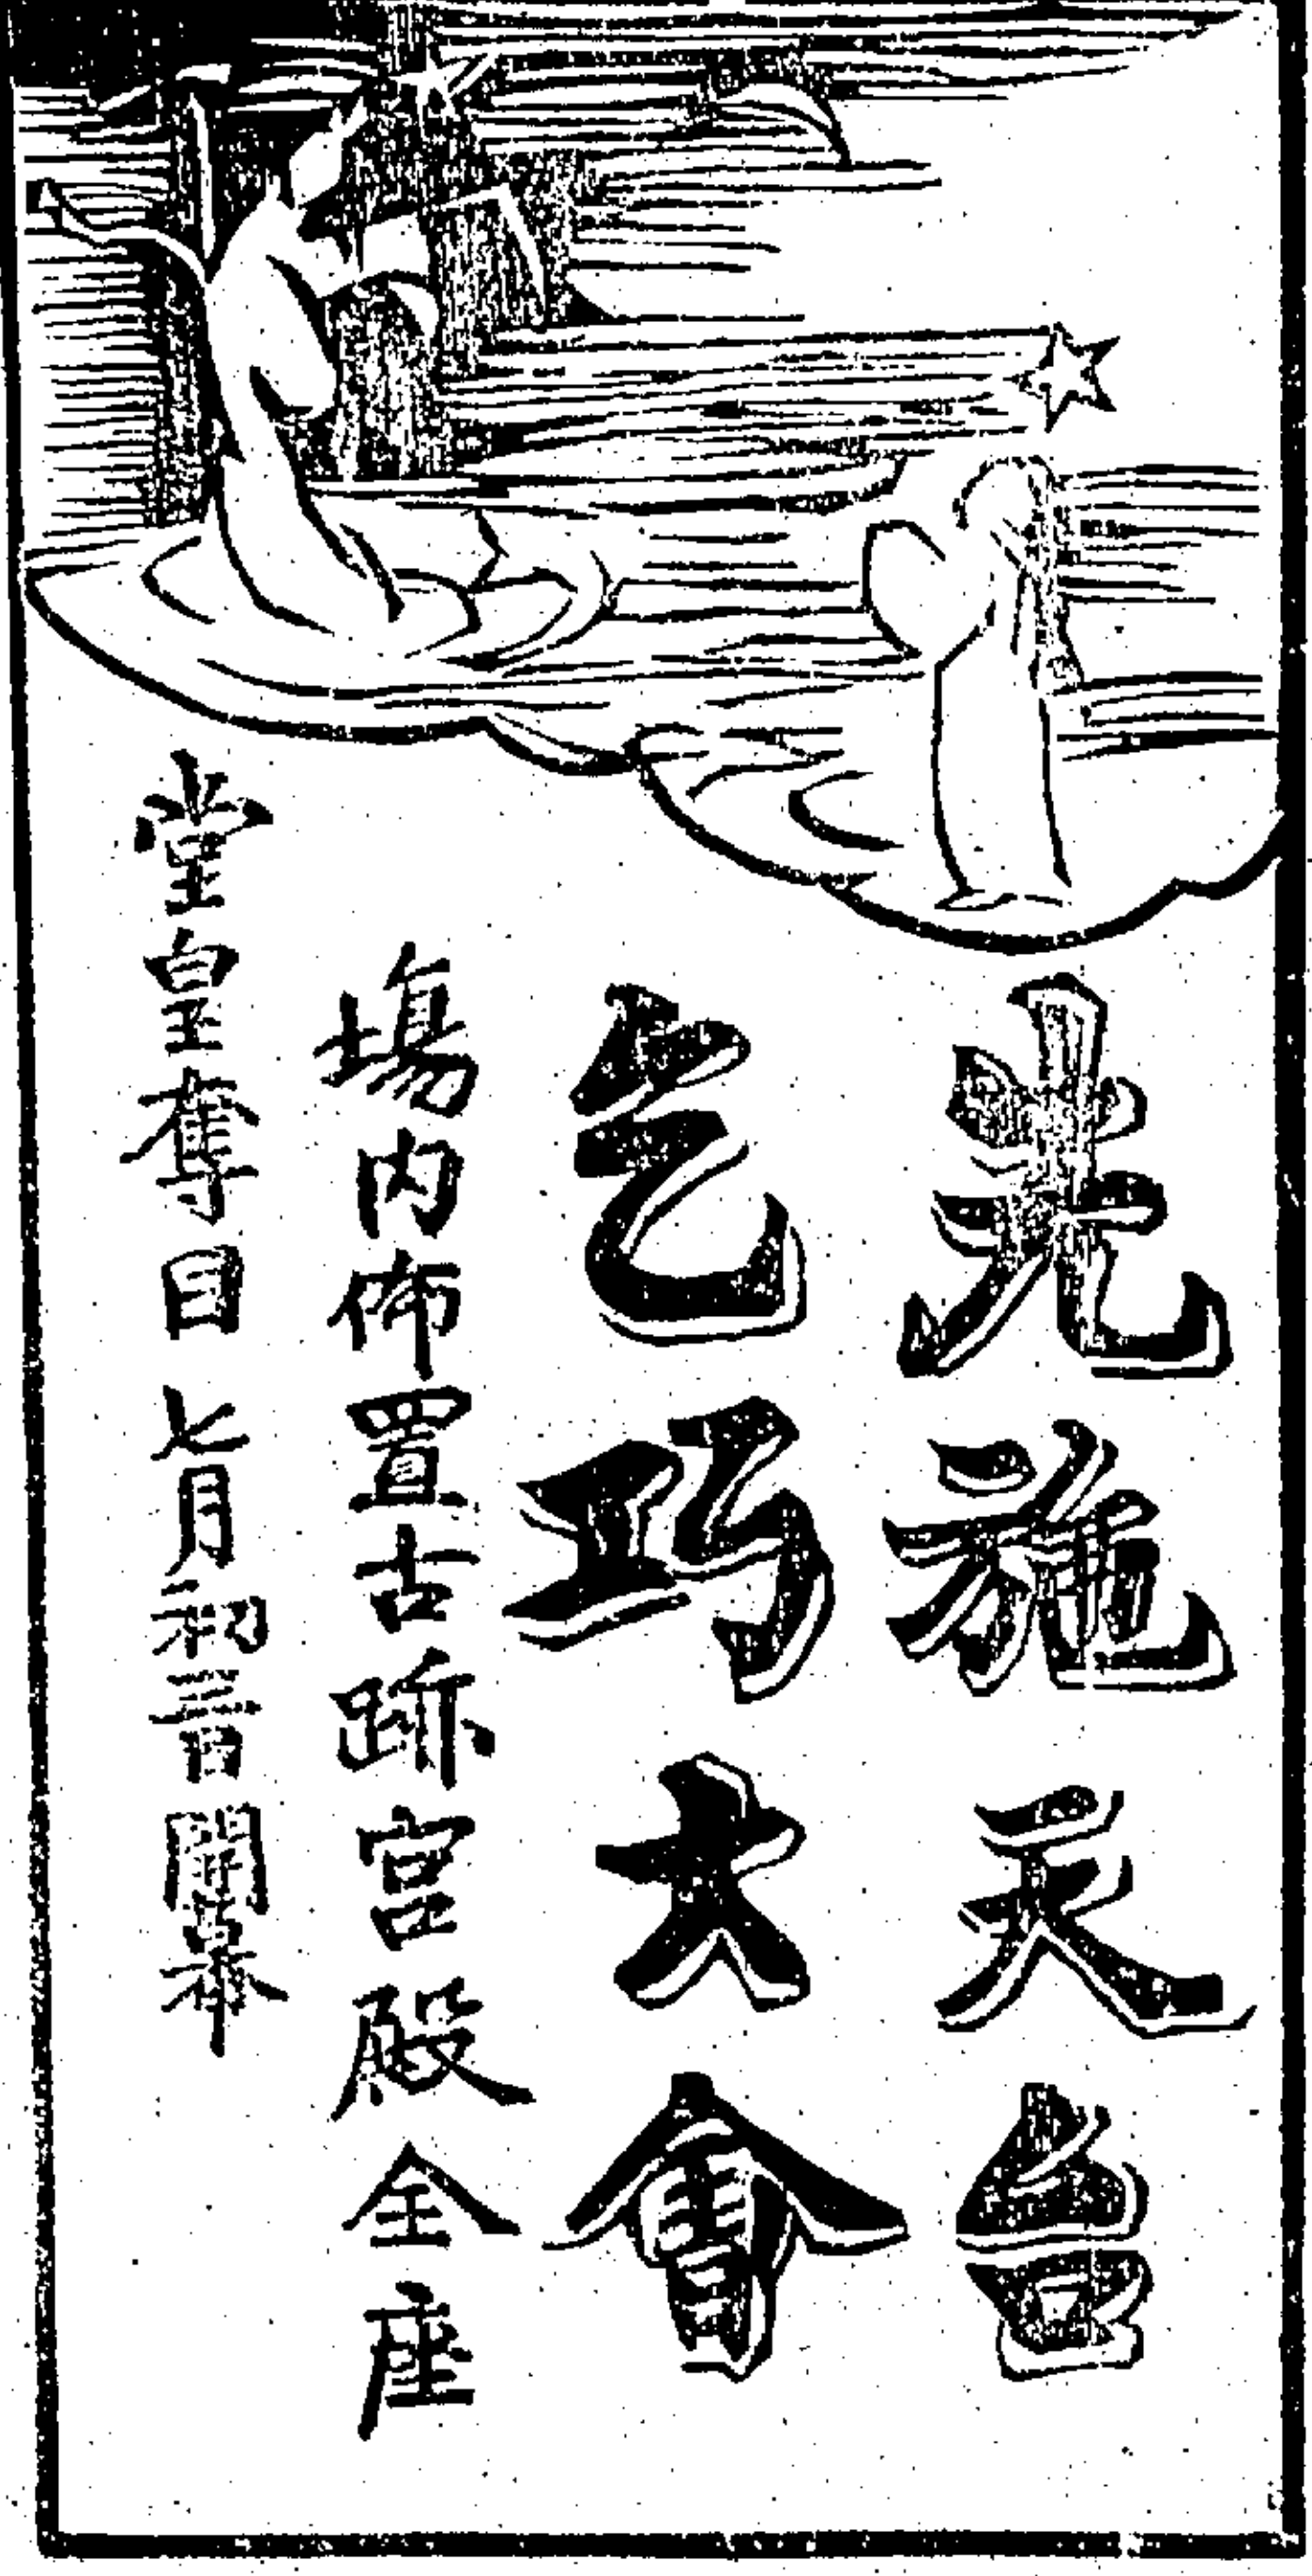 先施天台
乞巧大會
塲内佈置古跡宮殿全座
堂皇奪目 七月初三日開幕